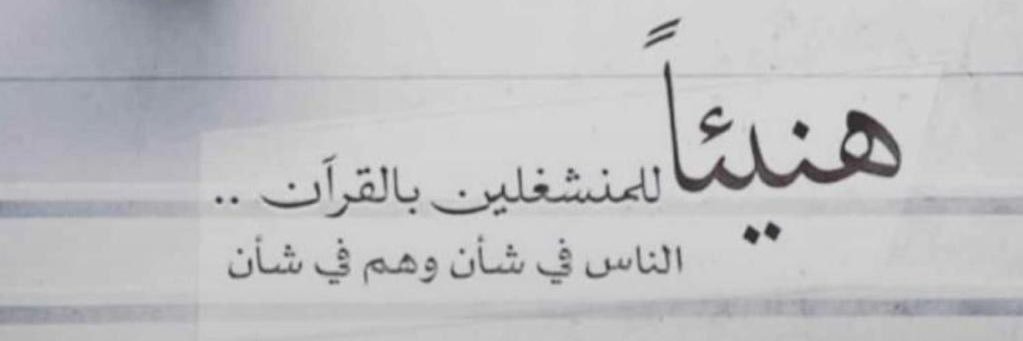 هنيئاً للمنشغلين بالقرآن ..
الناس في شأن وهم في شأن